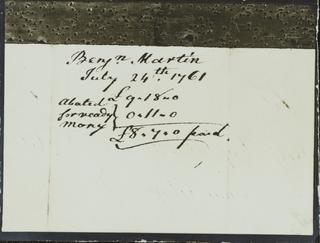 Benjn. Martin
July 24th. 1761
£9-18-0
Abated
for ready } 0-11-0
mony
£8-7-0 paid.